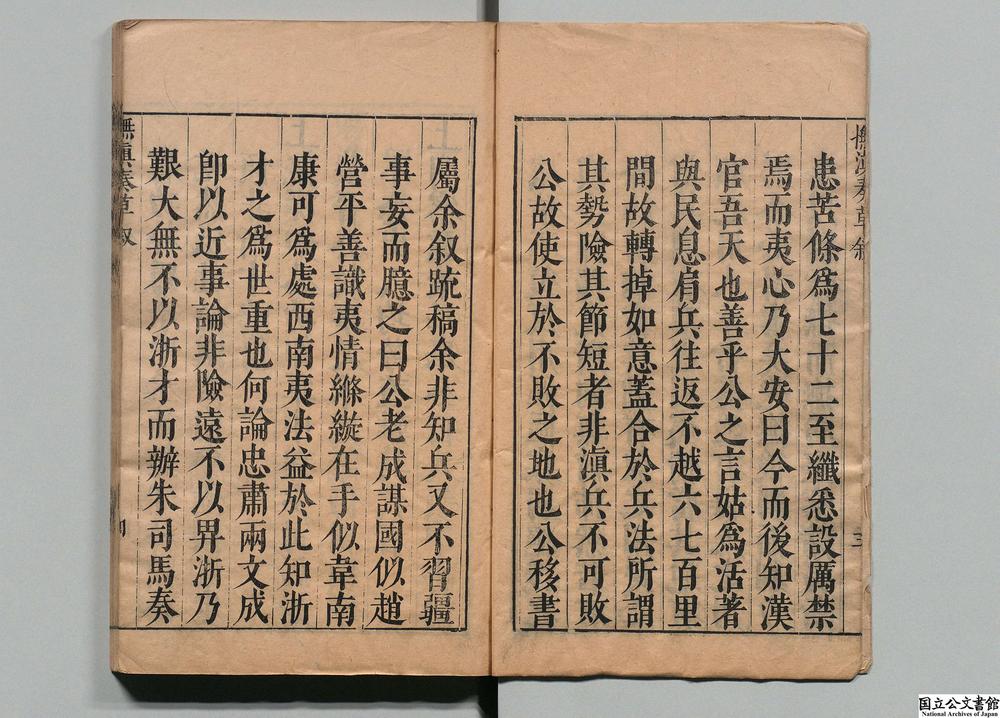 撫滇奏草叙
三
患苦條爲七十二至纖悉設厲禁
焉而夷心乃大安曰今而後知漢
官吾天也善乎公之言姑爲活著
與民息肩兵往返不越六七百里
間故轉掉如意蓋合於兵法所謂
其勢險其節短者非滇兵不可敗
公故使立於不敗之地也公移書
屬余叙疏稿余非知兵又不習疆
事妄而臆之曰公老成謀國似趙
營平善識夷情縧縱在手似韋南
康可爲處西南夷法益於此知浙
才之爲世重也何論忠肅兩文成
卽以近事論非險遠不以畀浙乃
艱大無不以浙才而辦朱司馬奏
撫滇奏草叙
国立公文書館
National Archives of Japan